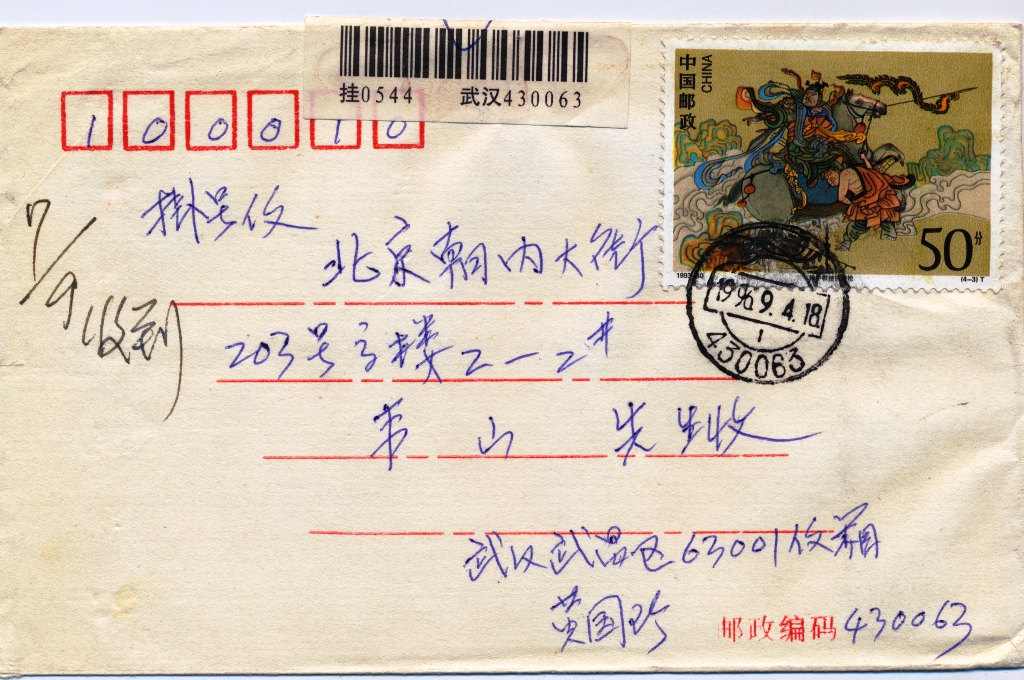 挂0544 武汉430063
中国邮政
CHINA
50分
(4-3)T
1996.9.4.18
1
430063
100010
掛号仪
北京朝内大街
203号3楼2-2#
韦山 先生收
7/9收到
武汉武昌区63001信箱
黄国珍
邮政编码430063